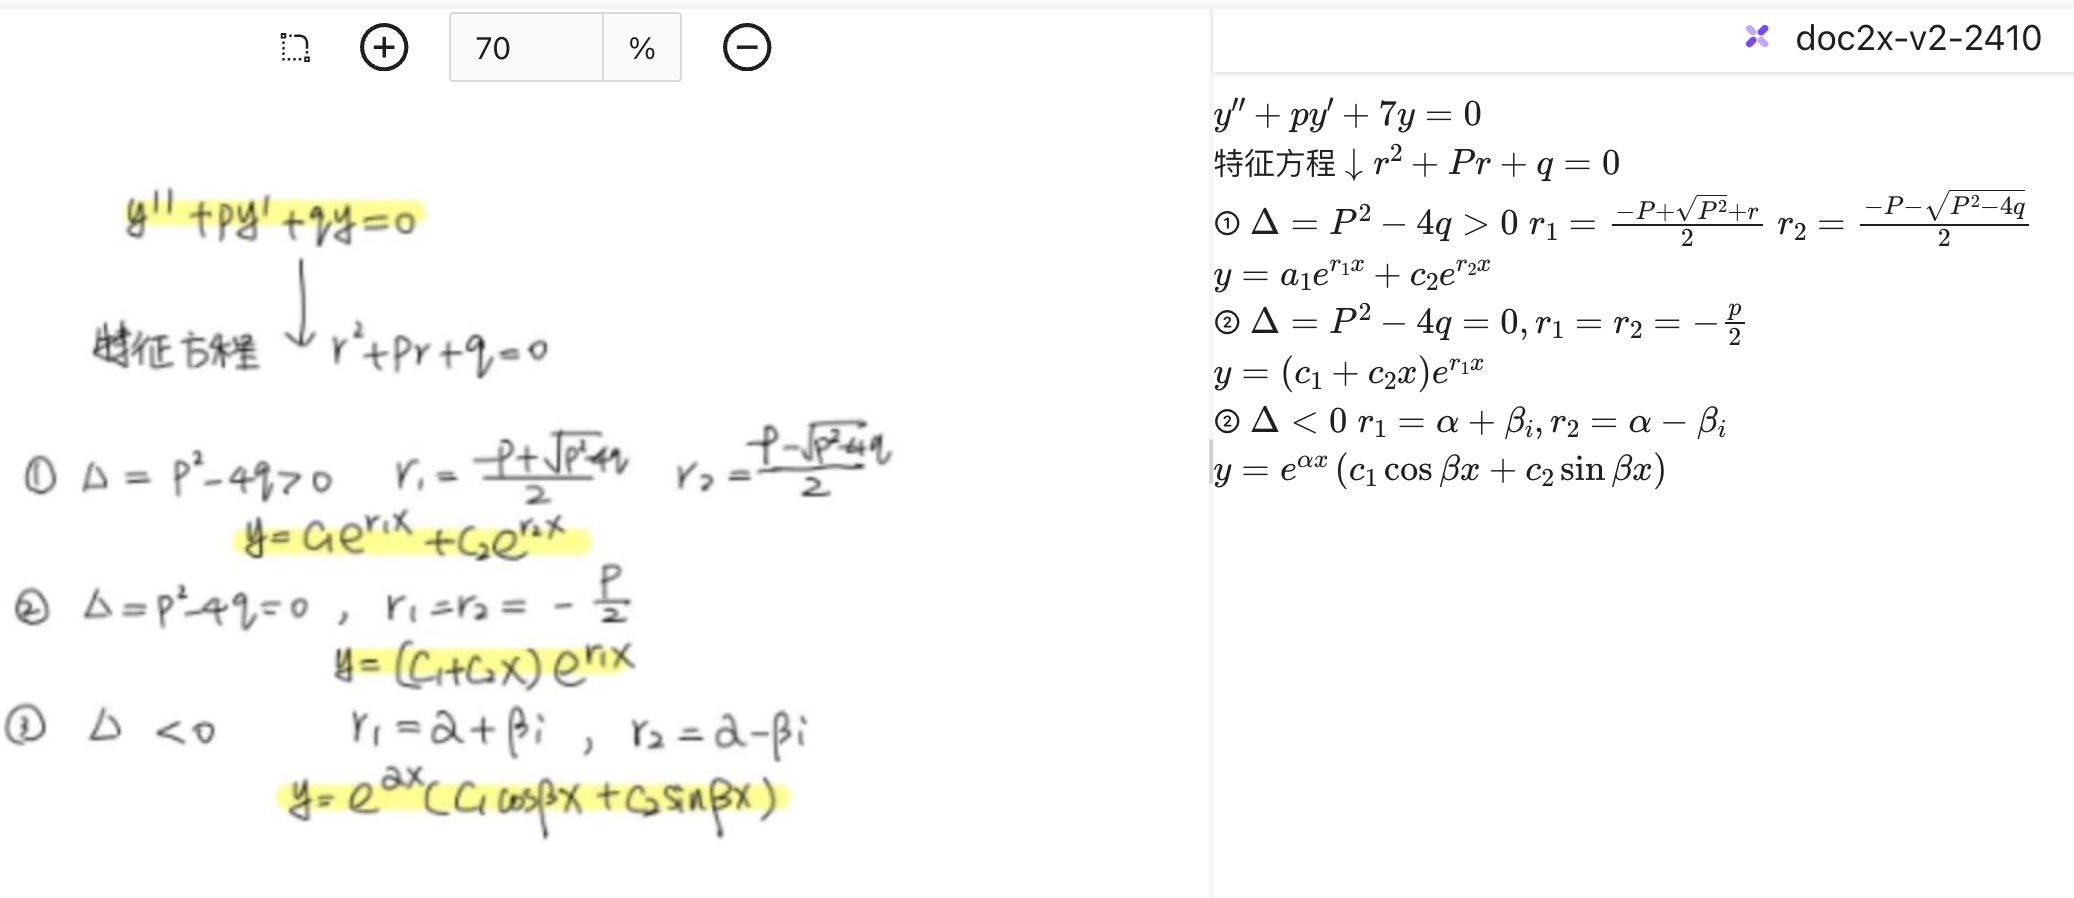 70 %
y'' + py' + qy = 0
特征方程 ↓ r² + pr + q = 0
① Δ = p² - 4q > 0 r₁ = (-p + √(p² - 4q))/2 r₂ = (-p - √(p² - 4q))/2
y = C₁e^(r₁x) + C₂e^(r₂x)
② Δ = p² - 4q = 0 , r₁ = r₂ = - p/2
y = (C₁ + C₂x) e^(r₁x)
③ Δ < 0 r₁ = α + βi , r₂ = α - βi
y = e^(αx) (C₁ cosβx + C₂ sinβx)
doc2x-v2-2410
y'' + py' + 7y = 0
特征方程 ↓ r² + Pr + q = 0
① Δ = P² − 4q > 0 r₁ = (−P+√(P²)+r)/2 r₂ = (−P−√(P²−4q))/2
y = a₁e^(r₁x) + c₂e^(r₂x)
② Δ = P² − 4q = 0, r₁ = r₂ = − p/2
y = (c₁ + c₂x)e^(r₁x)
② Δ < 0 r₁ = α + βᵢ, r₂ = α − βᵢ
y = e^(αx) (c₁ cos βx + c₂ sin βx)